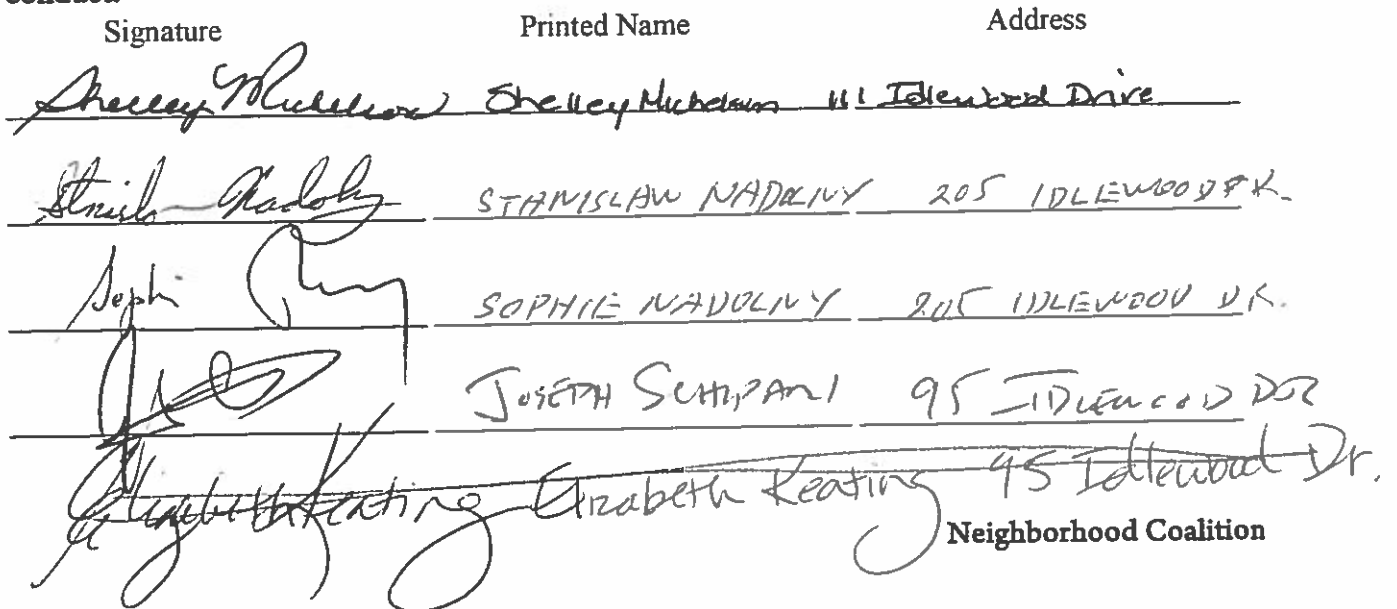 Signature Printed Name Address
Shelley Michelson Shelley Michelson 111 Idlewood Drive
Nadolny STANISLAW NADOLNY 205 IDLEWOOD DR.
Sophie SOPHIE NADOLNY 205 IDLEWOOD DR.
JOSEPH SCHIPANI 95 IDLEWOOD DR
Elizabeth Keating Elizabeth Keating 95 Idlewood Dr.
Neighborhood Coalition